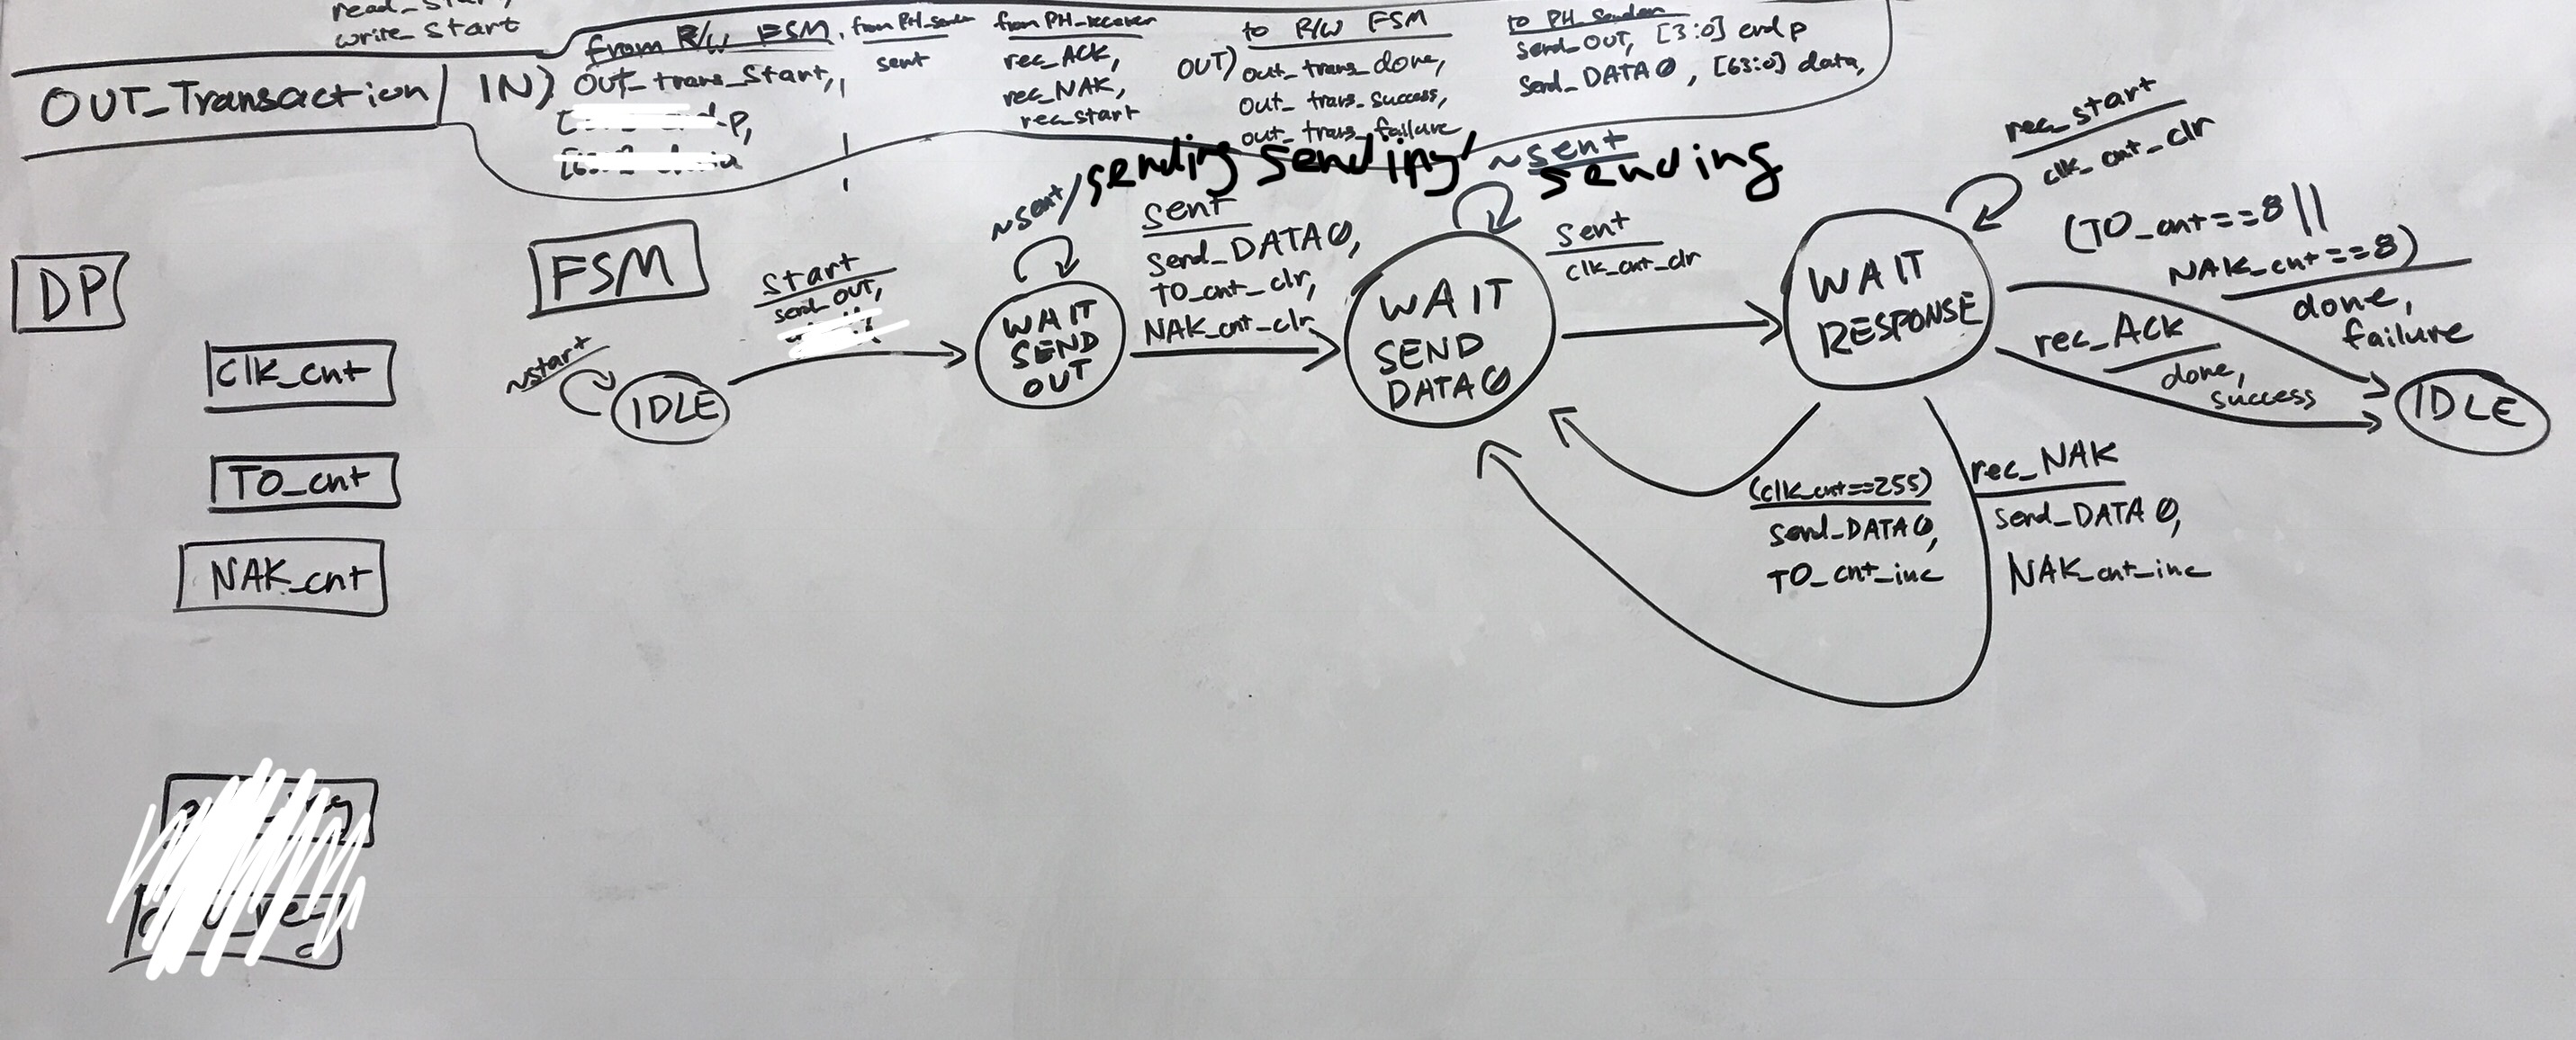 read_start,
write_start
OUT_Transaction
IN)
from R/W FSM,
OUT_trans_start,
p,
from PH_sender
sent
from PH_receiver
rec_ACK,
rec_NAK,
rec_start
OUT)
to R/W FSM
out_trans_done,
out_trans_success,
out_trans_failure
to PH_sender
send_OUT, [3:0] endp
send_DATA0, [63:0] data,
DP
clk_cnt
TO_cnt
NAK_cnt
FSM
~start
IDLE
start
send_OUT,
~sent/sending
WAIT
SEND
OUT
sending
sent
send_DATA0,
TO_cnt_clr,
NAK_cnt_clr
~sent
sending
WAIT
SEND
DATA0
sent
clk_cnt_clr
WAIT
RESPONSE
rec_start
clk_cnt_clr
(TO_cnt==8 ||
NAK_cnt==8)
done,
failure
rec_ACK
done,
success
IDLE
(clk_cnt==255)
send_DATA0,
TO_cnt_inc
rec_NAK
send_DATA0,
NAK_cnt_inc